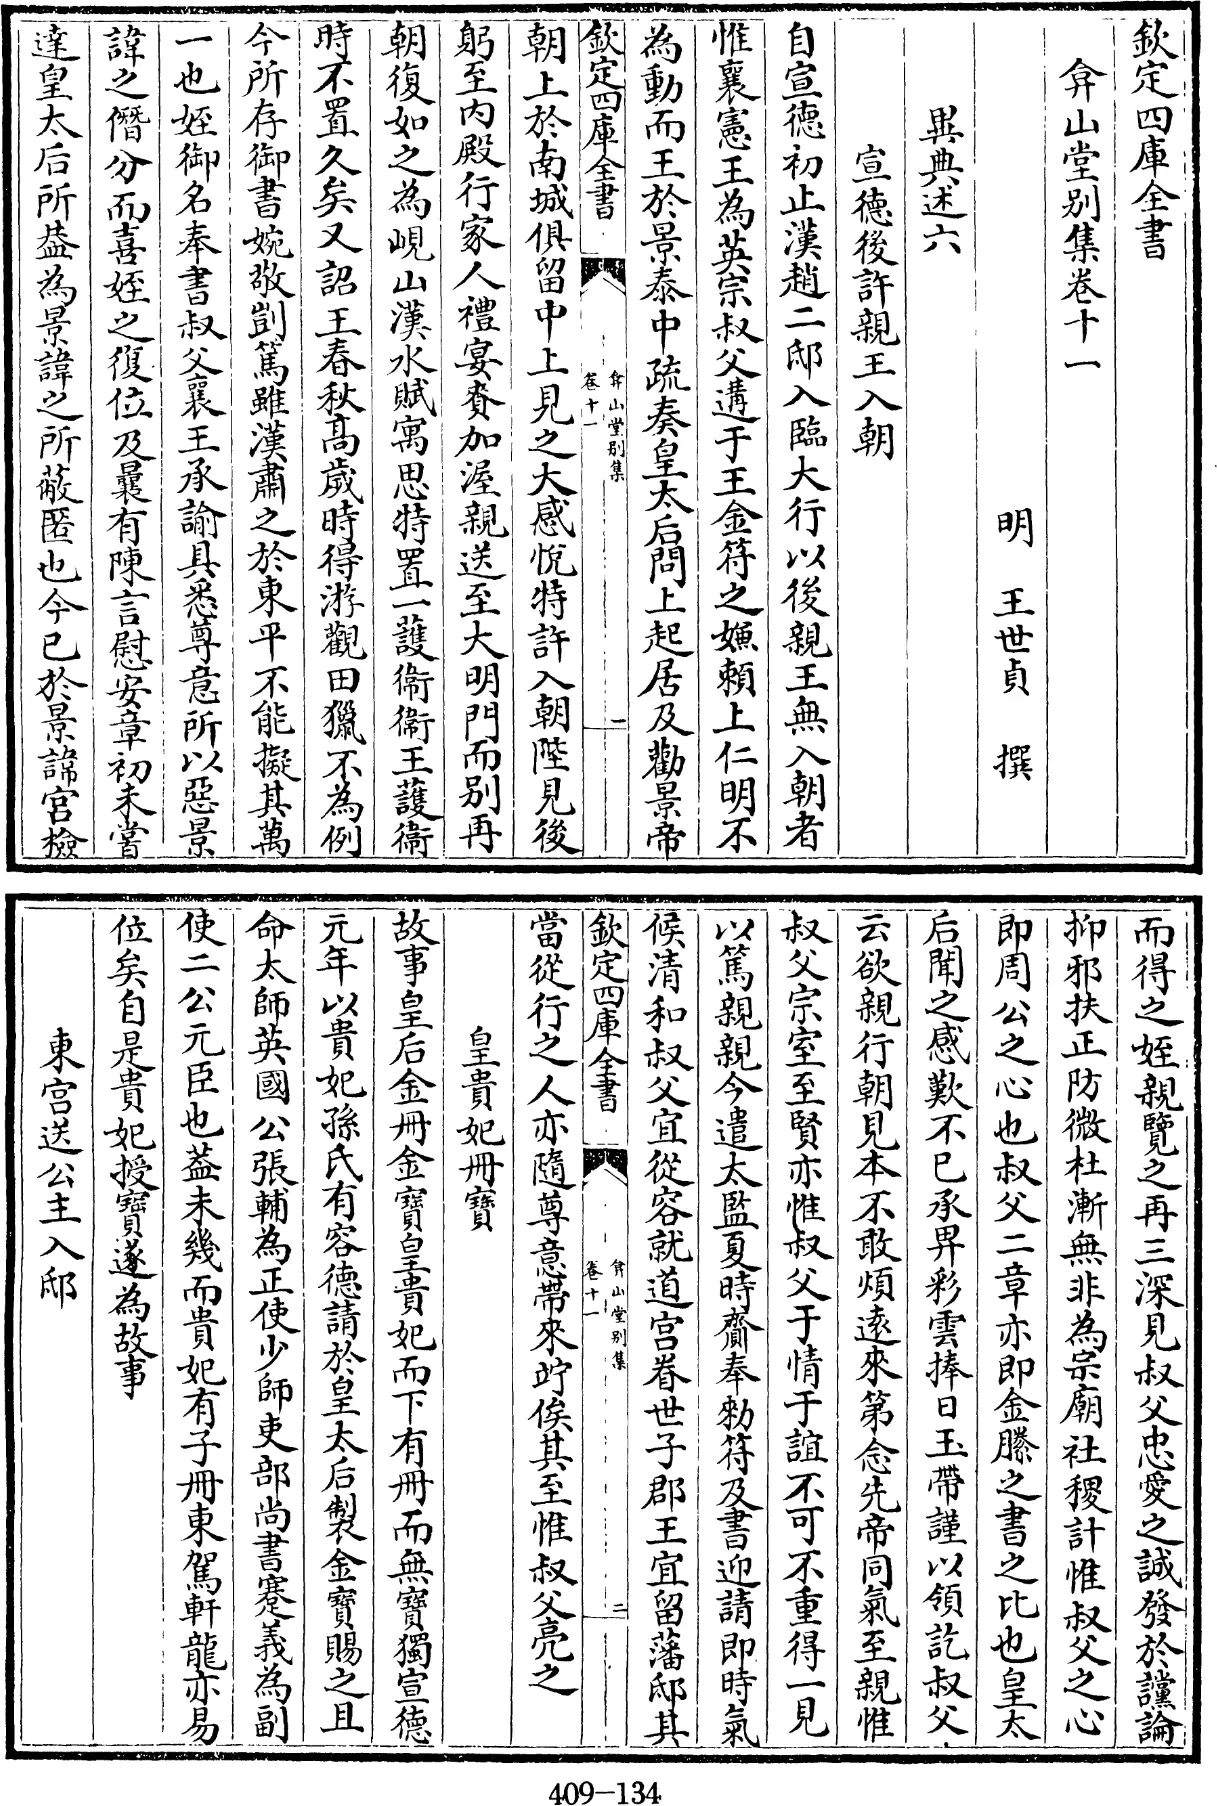 欽定四庫全書
弇山堂别集卷十一
明　王世貞　撰
異典述六
宣德後許親王入朝
自宣德初止漢趙二邸入臨大行以後親王無入朝者
惟襄憲王為英宗叔父遘于王金符之嫌賴上仁明不
為動而王於景泰中疏奏皇太后問上起居及勸景帝
欽定四庫全書
弇山堂别集
卷十一
一
朝上於南城俱留中上見之大感悅特許入朝陛見後
躬至内殿行家人禮宴賚加渥親送至大明門而别再
朝復如之為峴山漢水賦寓思特置一護衛衛王護衛
時不置久矣又詔王春秋高歲時得游觀田獵不為例
今所存御書婉敬剴篤雖漢肅之於東平不能擬其萬
一也姪御名奉書叔父襄王承諭具悉尊意所以惡景
諱之僭分而喜姪之復位及曩有陳言慰安章初未嘗
達皇太后所葢為景諱之所蔽匿也今已於景諱宮檢
而得之姪親覽之再三深見叔父忠愛之誠發於讜論
抑邪扶正防微杜漸無非為宗廟社稷計惟叔父之心
即周公之心也叔父二章亦即金縢之書之比也皇太
后聞之感歎不已承畀彩雲捧日玉帶謹以領訖叔父
云欲親行朝見本不敢煩遠來第念先帝同氣至親惟
叔父宗室至賢亦惟叔父于情于誼不可不重得一見
以篤親親今遣太監夏時齎奉勑符及書迎請即時氣
候清和叔父宜從容就道宫眷世子郡王宜留藩邸其
欽定四庫全書
弇山堂别集
卷十一
二
當從行之人亦隨尊意帶來竚俟其至惟叔父亮之
皇貴妃冊寶
故事皇后金冊金寶皇貴妃而下有冊而無寶獨宣德
元年以貴妃孫氏有容德請於皇太后製金寶賜之且
命太師英國公張輔為正使少師吏部尚書蹇義為副
使二公元臣也葢未幾而貴妃有子冊東駕軒龍亦易
位矣自是貴妃授寶遂為故事
東宮送公主入邸
409-134